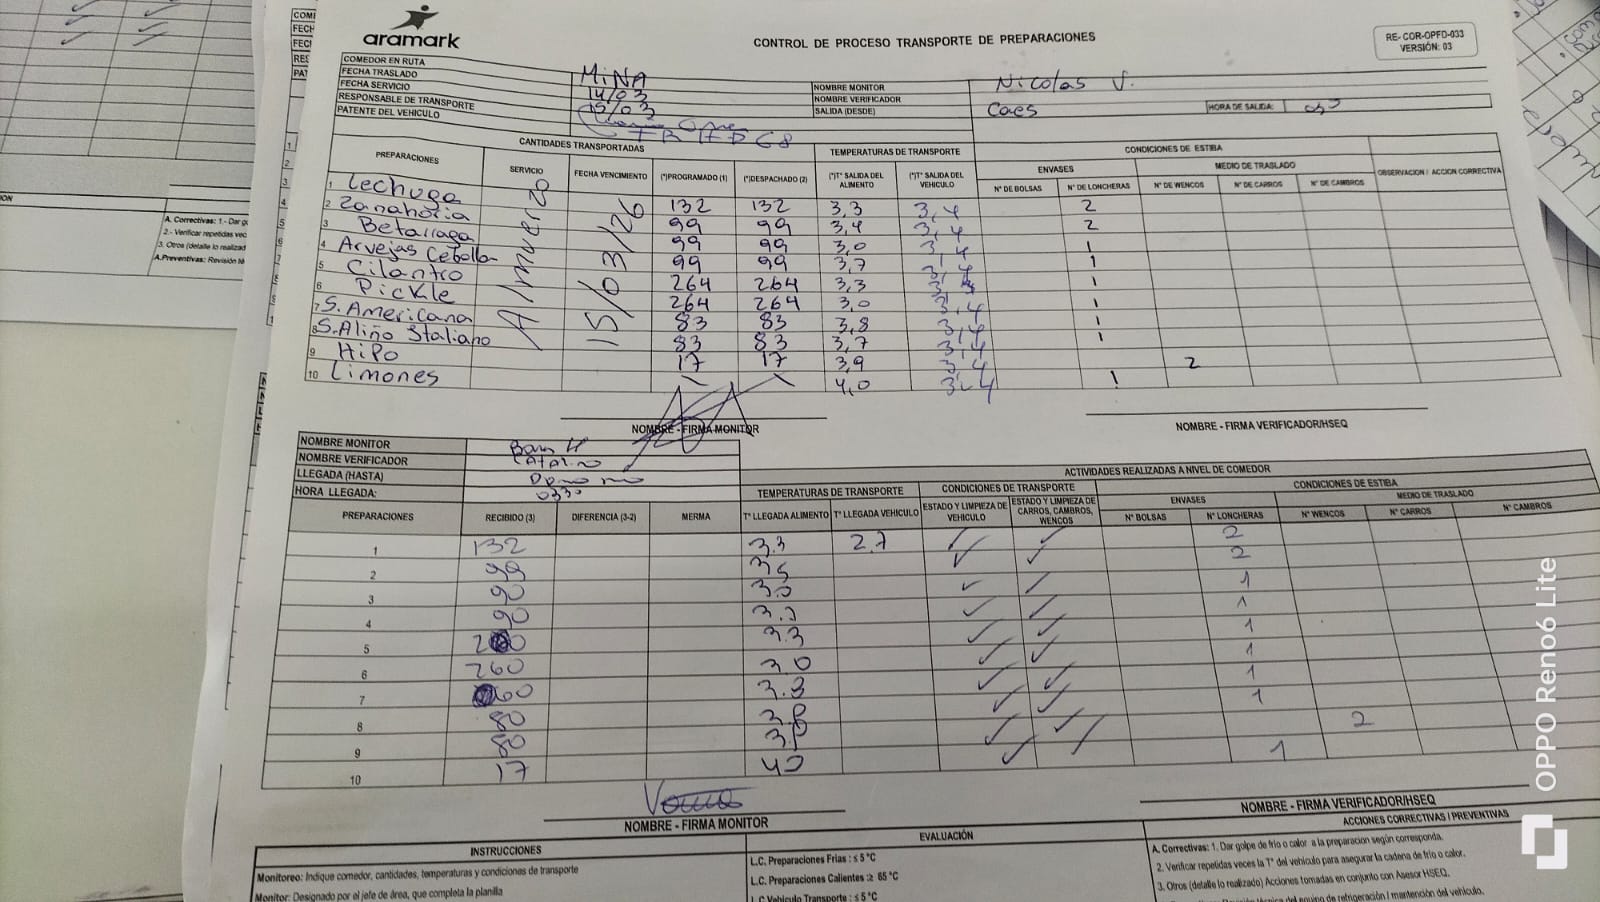 aramark
CONTROL DE PROCESO TRANSPORTE DE PREPARACIONES
RE- COR-OPFD-033
VERSIÓN: 03
COMEDOR EN RUTA MINA
FECHA TRASLADO 14/03
FECHA SERVICIO 15/03
RESPONSABLE DE TRANSPORTE
PATENTE DEL VEHICULO
NOMBRE MONITOR Nicolas V.
NOMBRE VERIFICADOR
SALIDA (DESDE) Caes HORA DE SALIDA:
CANTIDADES TRANSPORTADAS TEMPERATURAS DE TRANSPORTE CONDICIONES DE ESTIBA
PREPARACIONES SERVICIO FECHA VENCIMIENTO (*)PROGRAMADO (1) (*)DESPACHADO (2) (*)T° SALIDA DEL ALIMENTO (*)T° SALIDA DEL VEHICULO ENVASES MEDIO DE TRASLADO OBSERVACION / ACCION CORRECTIVA
N° DE BOLSAS N° DE LONCHERAS N° DE WENCOS N° DE CARROS N° DE CAMBROS
15/03/26
1 Lechuga 132 132 3,3 3,4 2
2 Zanahoria 99 99 3,4 3,4 2
3 Betarraga 99 99 3,0 3,4 1
4 Arvejas Cebolla 99 99 3,7 3,4 1
5 Cilantro 264 264 3,3 3,4 1
6 Pickle 264 264 3,0 3,4 1
7 S. Americana 83 83 3,8 3,4 1
8 S. Aliño Italiano 83 83 3,7 3,4 1
9 Hipo 17 17 3,9 3,4 2
10 Limones 4,0 3,4 1
NOMBRE - FIRMA MONITOR
NOMBRE - FIRMA VERIFICADOR/HSEQ
NOMBRE MONITOR
NOMBRE VERIFICADOR
LLEGADA (HASTA)
HORA LLEGADA: 0330
ACTIVIDADES REALIZADAS A NIVEL DE COMEDOR
TEMPERATURAS DE TRANSPORTE CONDICIONES DE TRANSPORTE CONDICIONES DE ESTIBA
PREPARACIONES RECIBIDO (3) DIFERENCIA (3-2) MERMA T° LLEGADA ALIMENTO T° LLEGADA VEHICULO ESTADO Y LIMPIEZA DE VEHICULO ESTADO Y LIMPIEZA DE CARROS, CAMBROS, WENCOS ENVASES MEDIO DE TRASLADO
N° BOLSAS N° LONCHERAS N° WENCOS N° CARROS N° CAMBROS
1 132 3.3 2.7 ✓ ✓ 2
2 99 3.5 ✓ ✓ 2
3 90 3.0 ✓ ✓ 1
4 90 ✓ ✓ 1
5 3.3 ✓ ✓ 1
6 260 3.0 ✓ ✓ 1
7 ✓ ✓ 1
8 80 3.8 ✓ ✓ 1
9 80 ✓ ✓ 2
10 17 4.0 ✓ ✓ 1
NOMBRE - FIRMA MONITOR
NOMBRE - FIRMA VERIFICADOR/HSEQ
INSTRUCCIONES
Monitoreo: Indique comedor, cantidades, temperaturas y condiciones de transporte
Monitor: Designado por el jefe de área, que completa la planilla
EVALUACIÓN
L.C. Preparaciones Frias : ≤ 5 °C
L.C. Preparaciones Calientes :≥ 65 °C
L.C Vehiculo Transporte : ≤ 5 °C
ACCIONES CORRECTIVAS / PREVENTIVAS
A. Correctivas: 1. Dar golpe de frio o calor a la preparacion según corresponda.
2. Verificar repetidas veces la T° del vehiculo para asegurar la cadena de frio o calor.
3. Otros (detalle lo realizado) Acciones tomadas en conjunto con Asesor HSEQ.
del equipo de refrigeración / mantención del vehiculo.
A. Correctivas: 1.- Dar
2.- Verificar repetidas
3. Otros (detalle lo
A.Preventivas: Revisión
OPPO Reno6 Lite